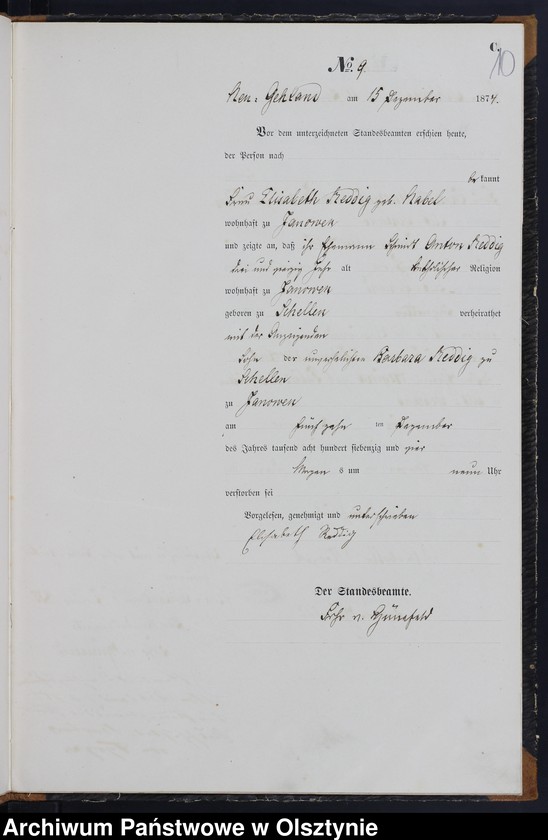 C.
10
No. 9.
Neu-Gehland am 15 Dezember 1874.
Vor dem unterzeichneten Standesbeamten erschien heute,
der Person nach
be kannt
Frau Elisabeth Reddig geb. Nabel
wohnhaft zu Janowen
und zeigte an, daß ihr Ehemann Schmidt Anton Reddig
drei und vierzig Jahr alt katholischer Religion
wohnhaft zu Janowen
geboren zu Schellen verheirathet
mit der Anzeigenden
Sohn der unverehelichten Barbara Reddig zu
Schellen
zu Janowen
am fünfzehn ten Dezember
des Jahres tausend acht hundert siebenzig und vier
Morgen s um neun Uhr
verstorben sei
Vorgelesen, genehmigt und unterschrieben
Elisabeth Reddig
Der Standesbeamte.
v.
Archiwum Państwowe w Olsztynie